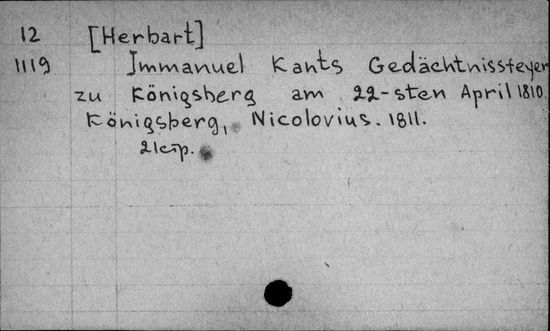 12 [Herbart]
1119 Immanuel Kants Gedächtnissfeyer
zu Königsberg am 22-sten April 1810.
Königsberg, Nicolovius. 1811.
21стр.